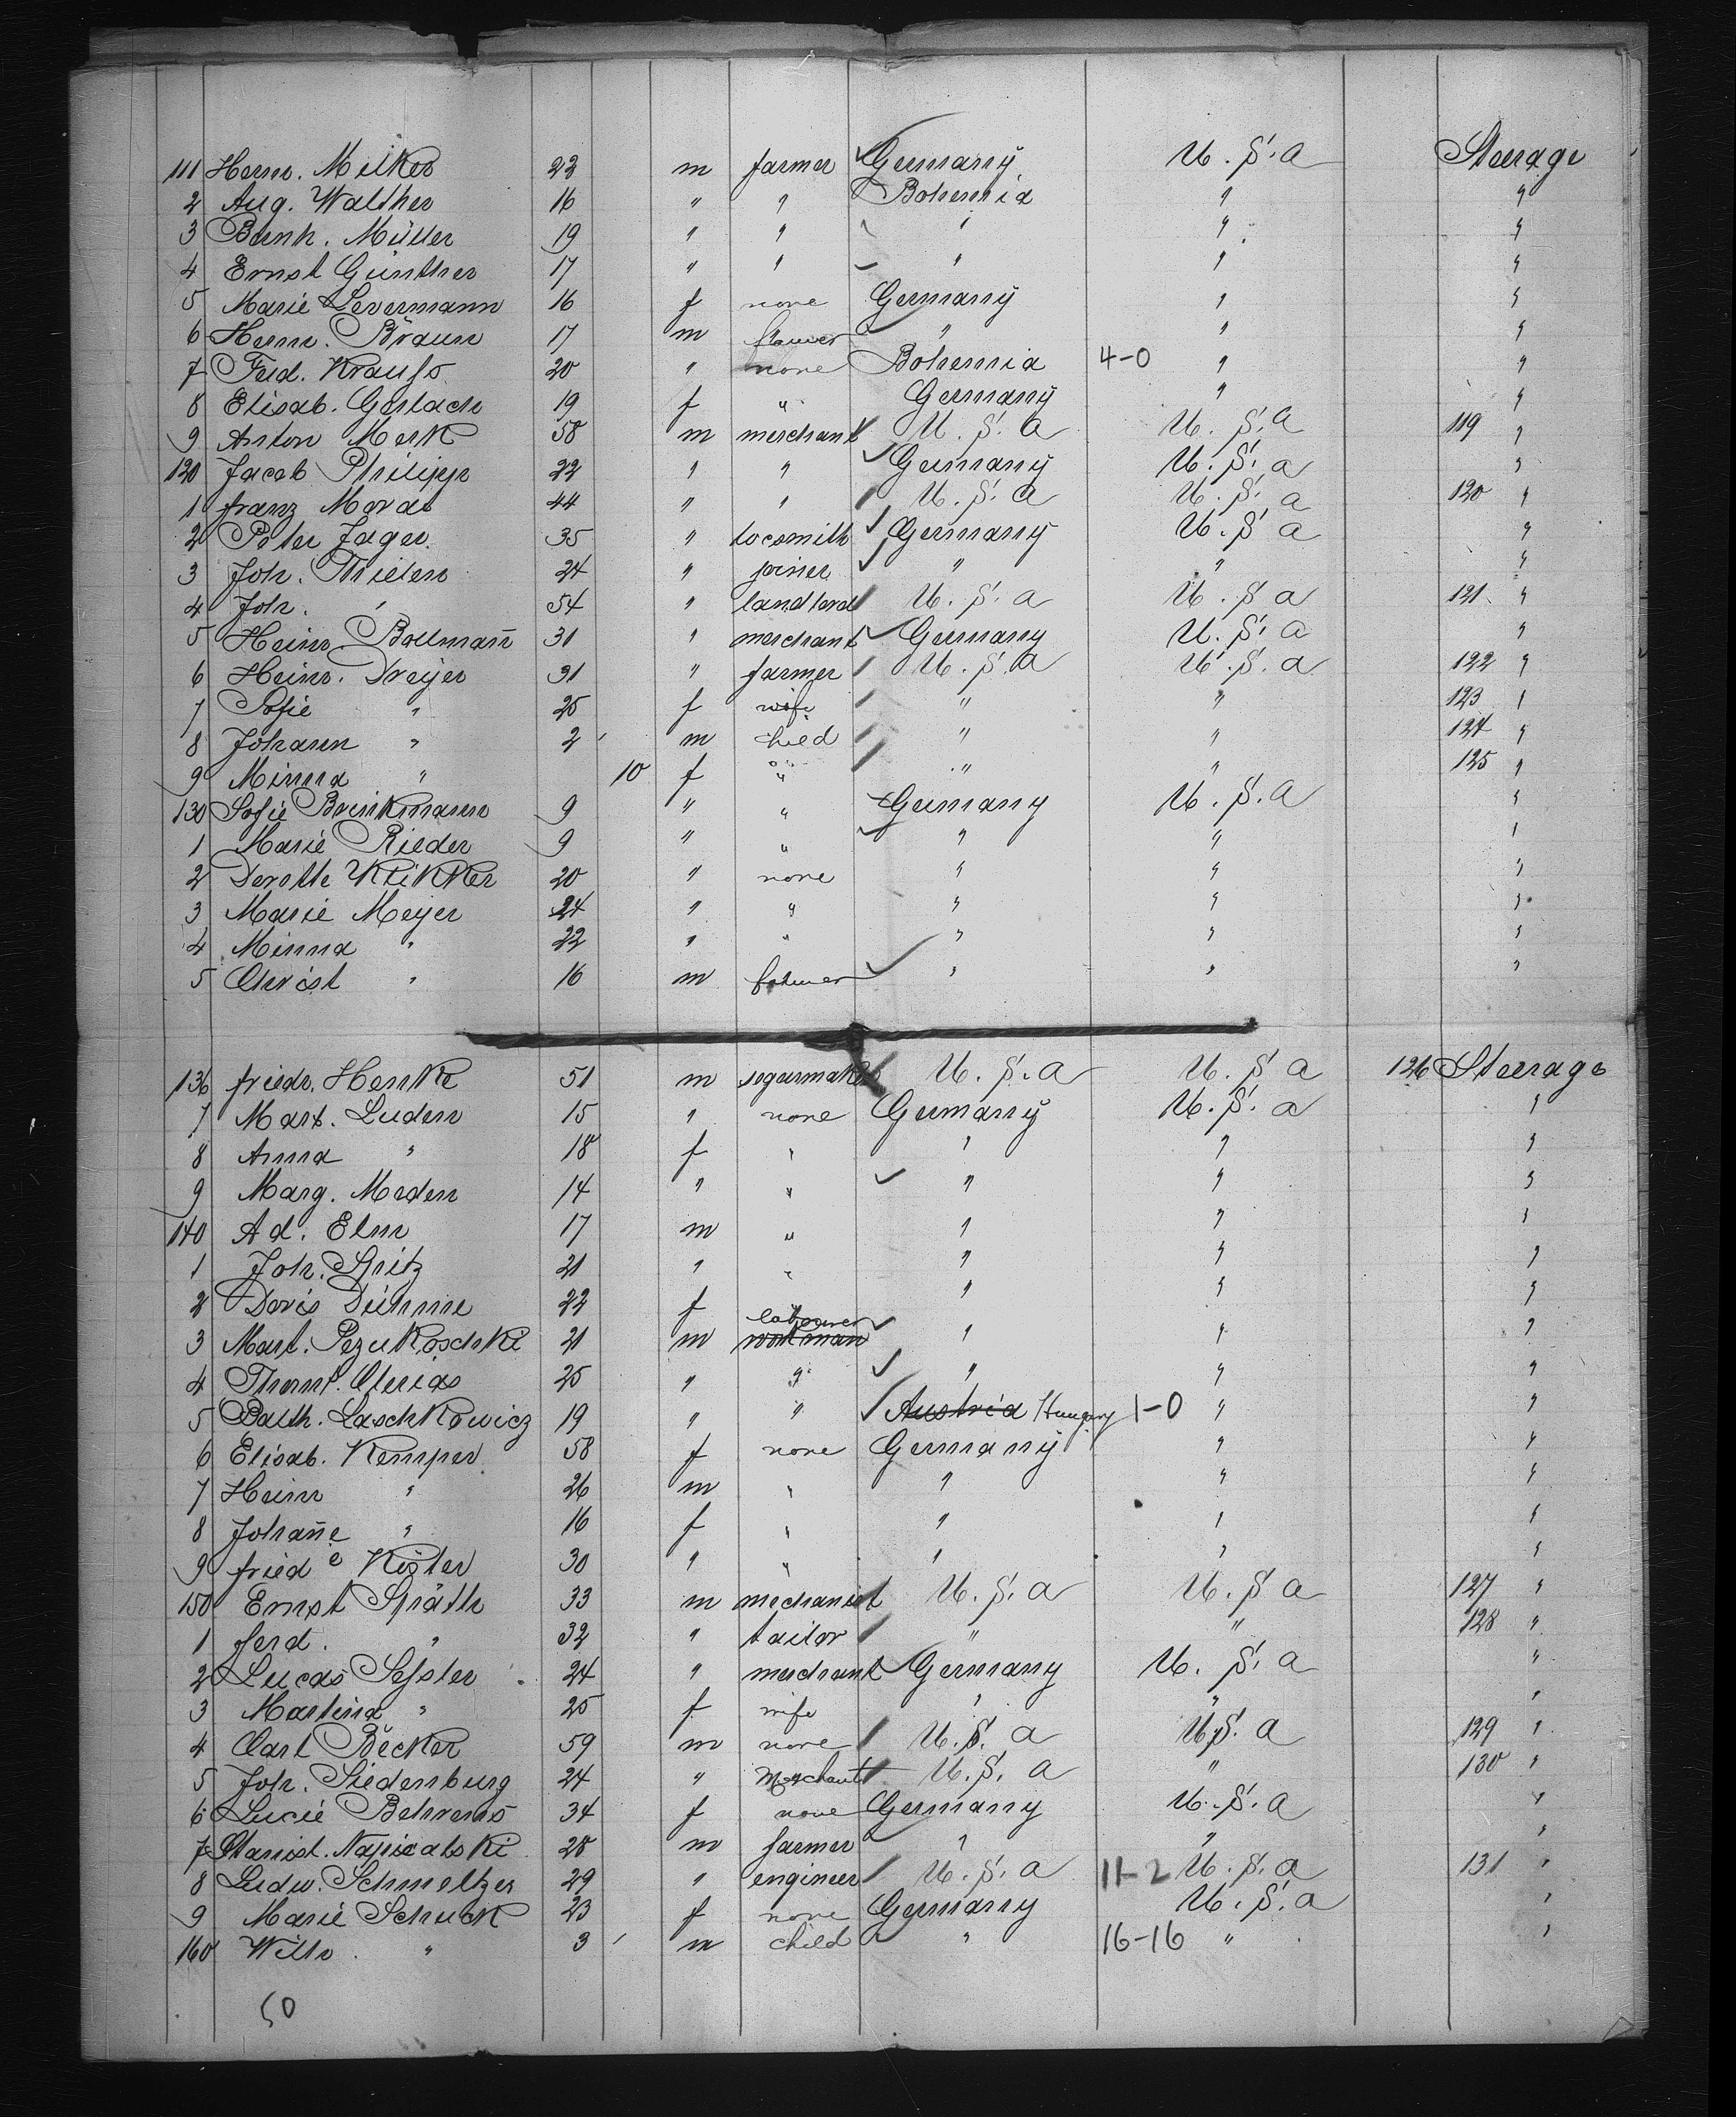 111 Herm. Milkes 23 m farmer Germany U.S.A Steerage
2 Aug. Walther 16 " " Bohemia " "
3 Bernh. Müller 19 " " " " "
4 Ernst Günther 17 " " " " "
5 Marie Levermann 16 f none Germany " "
6 Herm. Braun 17 m farmer " " "
7 Fried. Krauss 20 " none Bohemia 4-0 " "
8 Elisab. Gerlach 19 f " Germany " "
9 Anton Merk 58 m merchant U.S.A U.S.A 119 "
120 Jacob Philipp 22 " " Germany U.S.A "
1 Franz 44 " " U.S.A U.S.A 120 "
2 Peter Jager 35 " locsmith Germany U.S.A "
3 Joh. Thielen 24 " joiner " " "
4 Joh. " 54 " landlord U.S.A U.S.A 121 "
5 Heinr. Bollmañ 31 " merchant Germany U.S.A "
6 Heinr. Dreijer 31 " farmer U.S.A U.S.A 122 "
7 Sofie " 25 f wife " " 123 "
8 Johann " 2 m child " " 124 "
9 Minna " 10 f " " " 125 "
130 Sofie Brinkmann 9 " " Germany U.S.A "
1 Marie Rieder 9 " " " " "
2 Dorothe Klikker 20 " none " " "
3 Marie Meijer 24 " " " " "
4 Minna " 22 " " " " "
5 Christ " 16 m farmer " " "
136 Friedr. Henke 51 m segarmaker U.S.A U.S.A 126 Steerage
7 Mart. Luden 15 " none Germany U.S.A "
8 Anna " 18 f " " " "
9 Marg. Meden 14 " " " " "
140 Ad. Elm 17 m " " " "
1 Joh. Spitz 21 " " " " "
2 Doris Dühme 22 f " " " "
3 Mart. Pezukoschki 21 m workman labourer " " "
4 25 " " " " "
5 Balth. Laschkowicz 19 " " Austria Hungary 1-0 " "
6 Elisab. Kemper 58 f none Germany " "
7 Heinr " 26 m " " " "
8 Johañe " 16 f " " " "
9 Fried e Kister 30 " " " " "
150 Ernst Späth 33 m mechanist U.S.A U.S.A 127 "
1 Ferd. " 32 " tailor " " 128 "
2 Lucas 24 " merchant Germany U.S.A "
3 Martina " 25 f wife " " "
4 Carl Becker 59 m none U.S.A U.S.A 129 "
5 Joh. Siedenburg 24 " Merchant U.S.A " 130 "
6 Lucie Behrens 34 f none Germany U.S.A "
7 Stanisl. Napieatski 28 m farmer " " "
8 Ludw. Schmeltzer 29 " engineer U.S.A 11-2 U.S.A 131 "
9 Marie Schuck 23 f none Germany U.S.A "
160 Wilh. " 3 m child " 16-16 " "
50